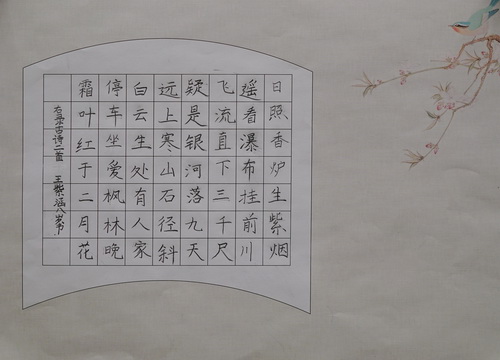 日照香炉生紫烟
遥看瀑布挂前川
飞流直下三千尺
疑是银河落九天
远上寒山石径斜
白云生处有人家
停车坐爱枫林晚
霜叶红于二月花
右录古诗二首 王紫涵八岁书